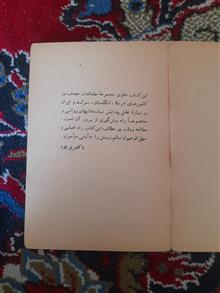 این کتاب حاوی مجموعهٔ مطالعات مصنف در
کشورهای امریکا، انگلستان، سوئد و ایران
در بارهٔ علل پیدایش نابسامانیهای روانی و
مخصوصاً راه پیش‌گیری از بروز آن است.
مطالعه و دقت در مطالب این کتاب راه اصلی و
سهل‌الوصول سالم زیستن را به آسانی میآموزد
دکتر پریور